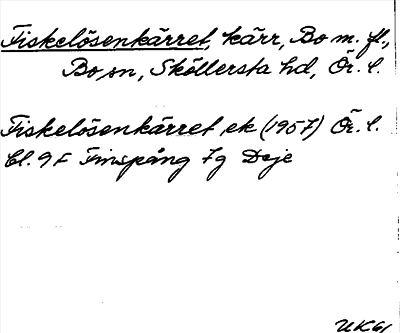 Fiskelösenkärret, kärr, Bo m. fl.,
Bo sn, Sköllersta hd, Ör. l.
Fiskelösenkärret ek (1957) Ör. l.
Bl. 9 F Finspång 7g Deje
UK61